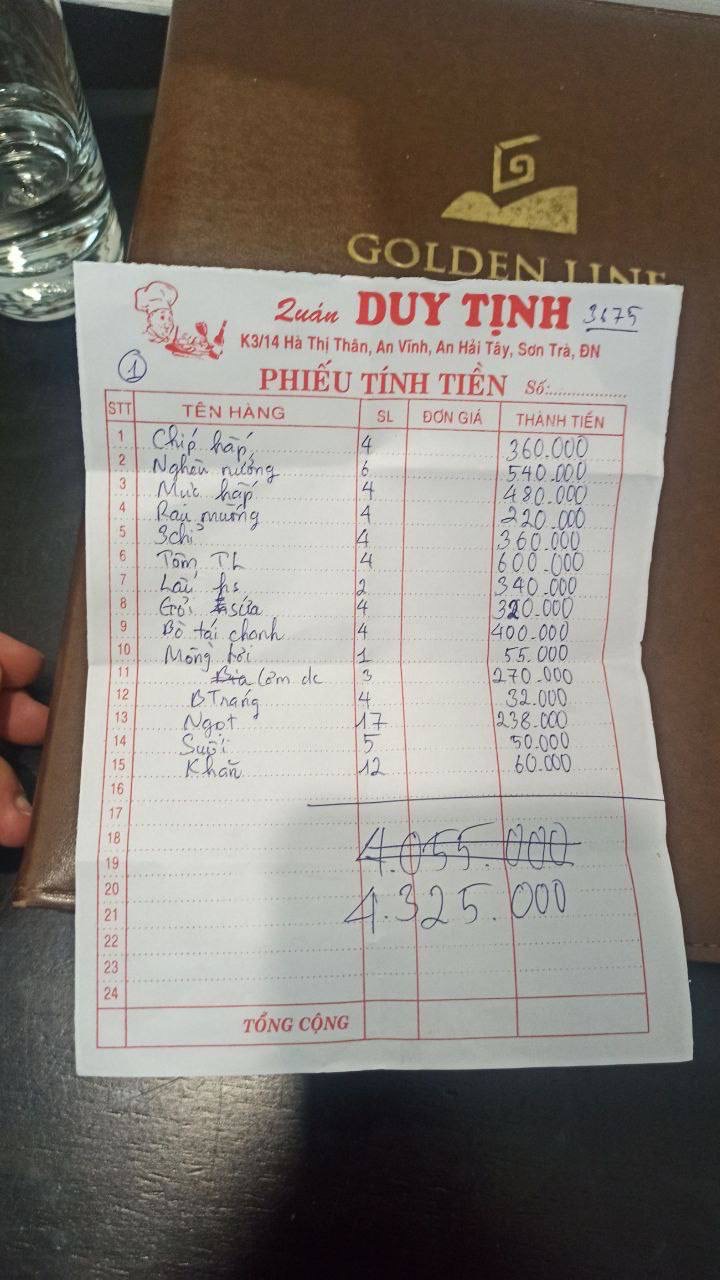 GOLDEN LINE
Quán DUY TỊNH 3675
K3/14 Hà Thị Thân, An Vĩnh, An Hải Tây, Sơn Trà, ĐN
1 PHIẾU TÍNH TIỀN Số:
STT TÊN HÀNG SL ĐƠN GIÁ THÀNH TIỀN
1 Chíp hấp 4 360.000
2 Nghêu nướng 6 540.000
3 Mực hấp 4 480.000
4 Rau muống 4 220.000
5 3chỉ 4 360.000
6 Tôm TL 4 600.000
7 Lẩu hs 2 340.000
8 Gỏi sứa 4 320.000
9 Bò tái chanh 4 400.000
10 Mồng tơi 1 55.000
11 Bia Cơm dc 3 270.000
12 BTráng 4 32.000
13 Ngọt 17 238.000
14 Suối 5 50.000
15 Khăn 12 60.000
16
17
18 4.055.000
19
20
21 4.325.000
22
23
24
TỔNG CỘNG